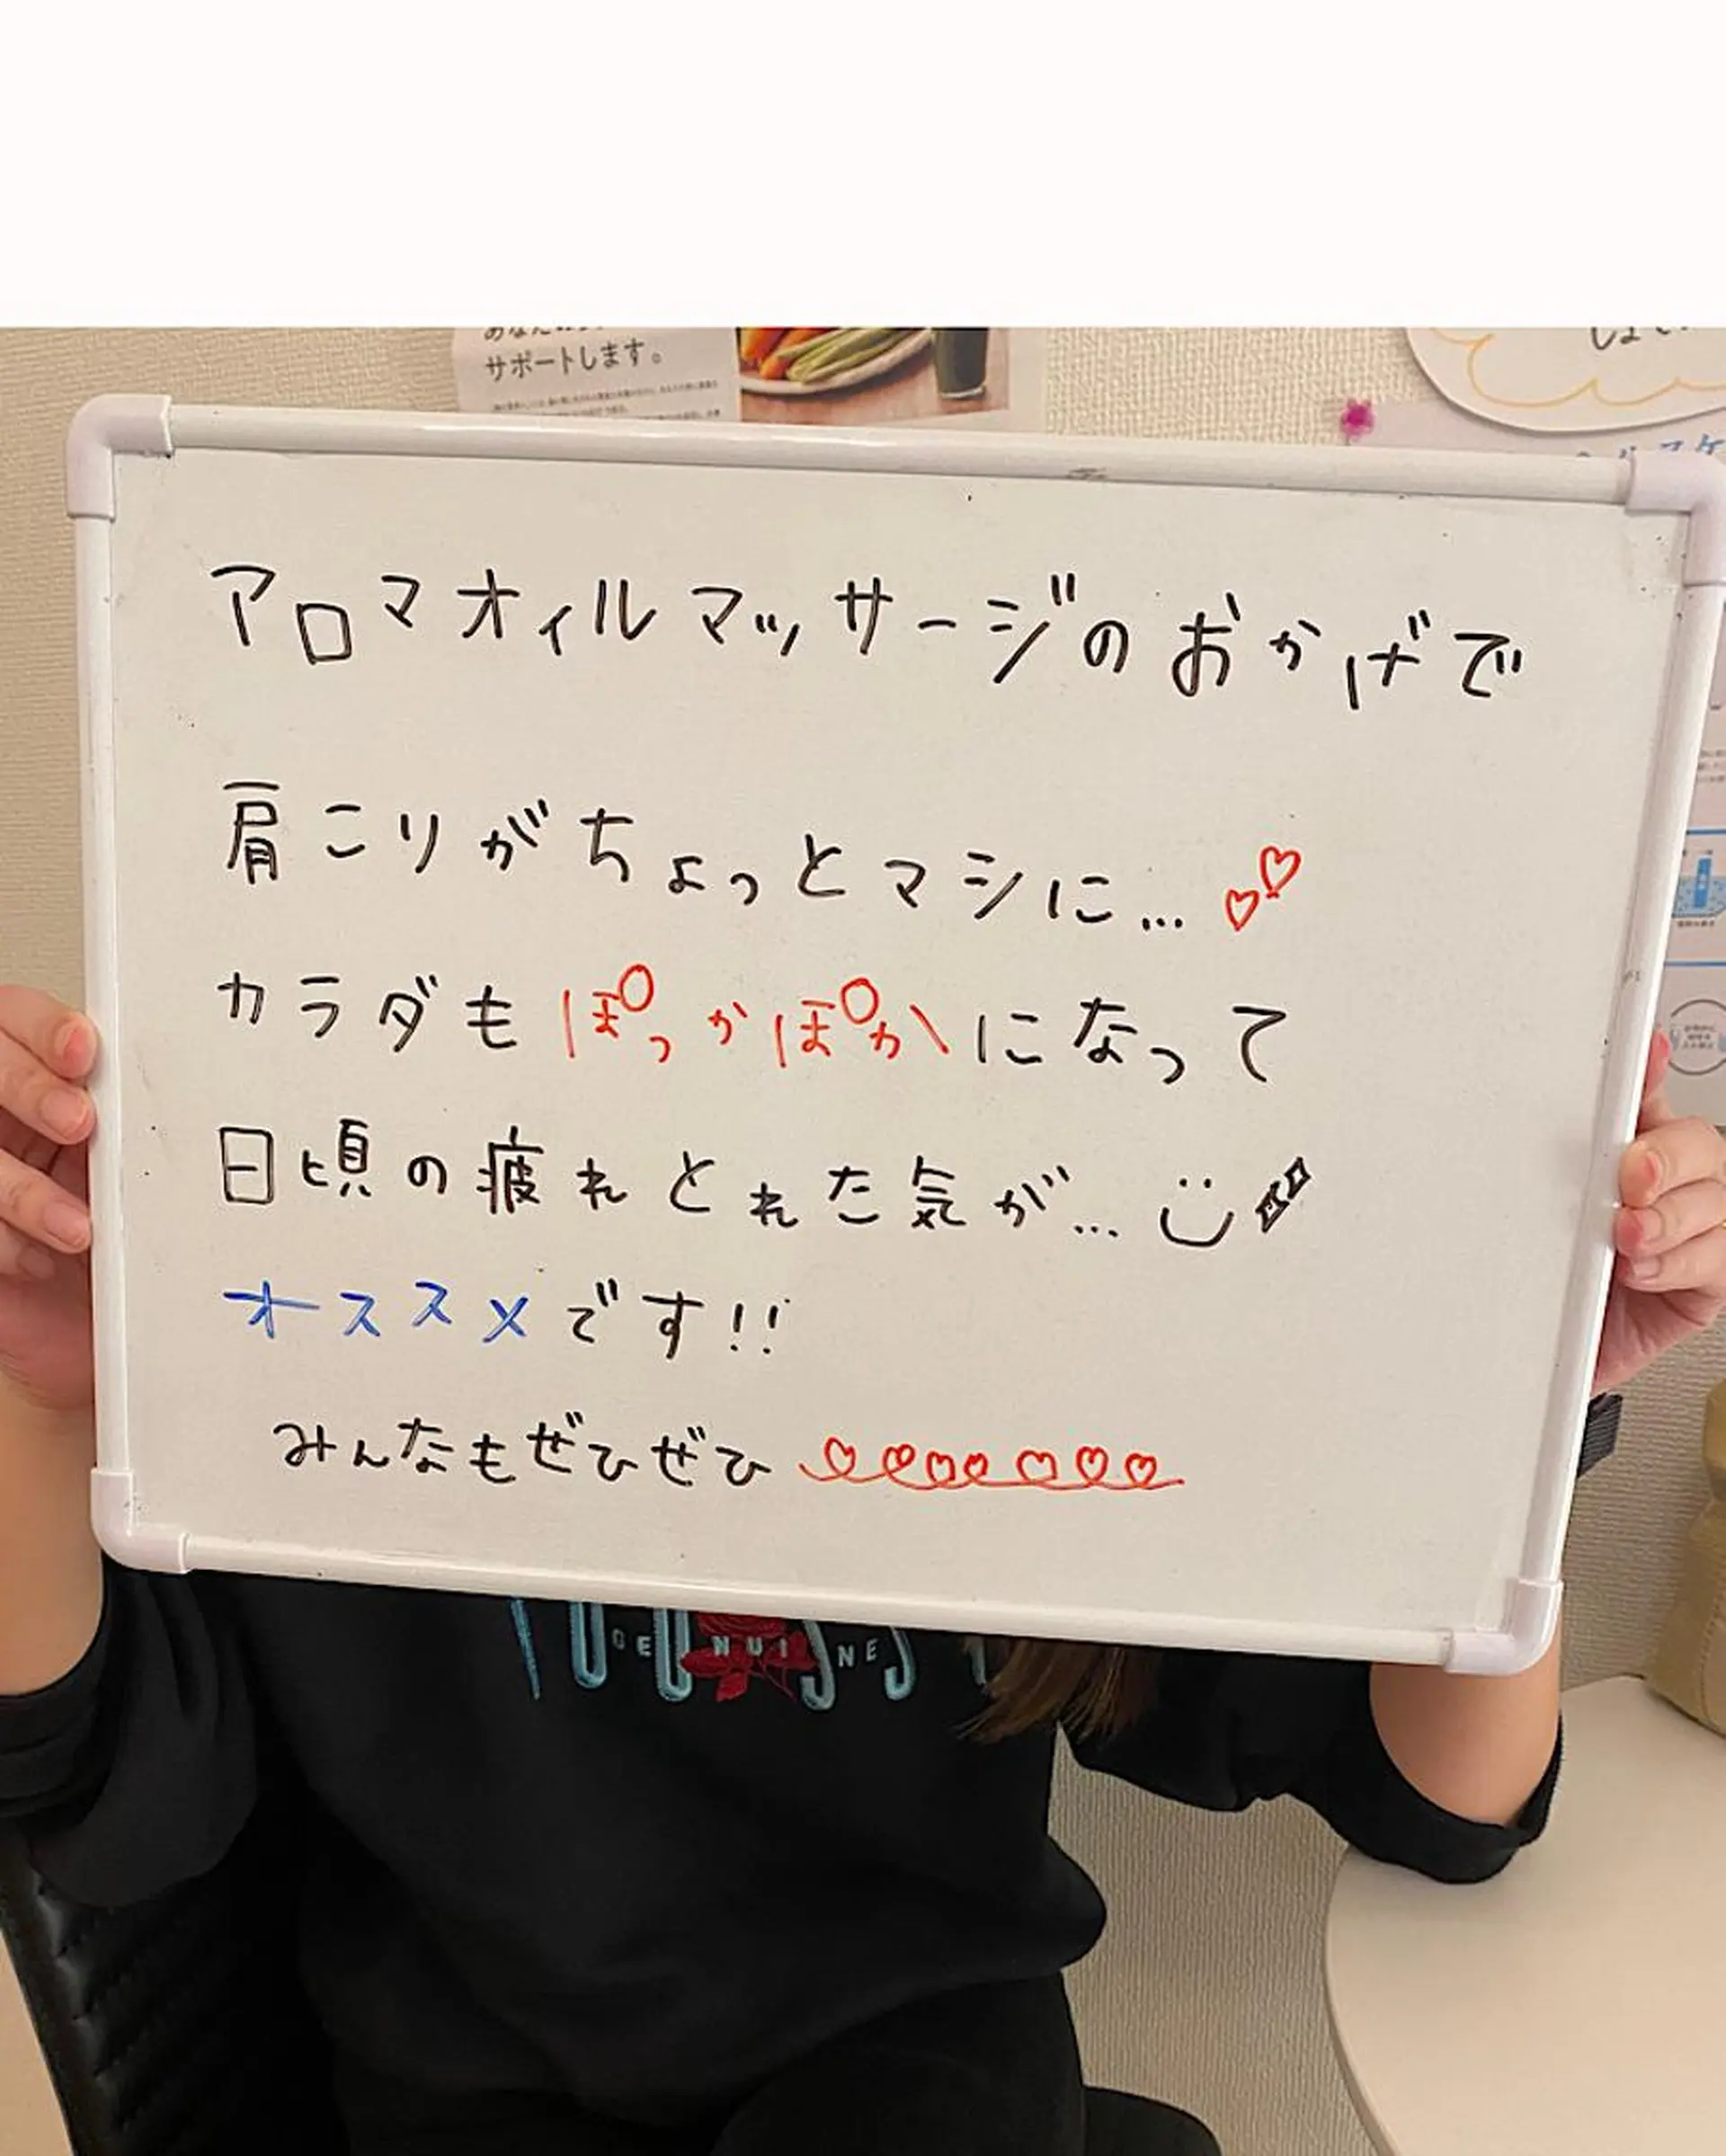 サポートします。
アロマオイルマッサージのおかげで
肩こりがちょっとマシに…
カラダもぽっかぽかになって
日頃の疲れとれた気が…
オススメです!!
みんなもぜひぜひ
GENUINE